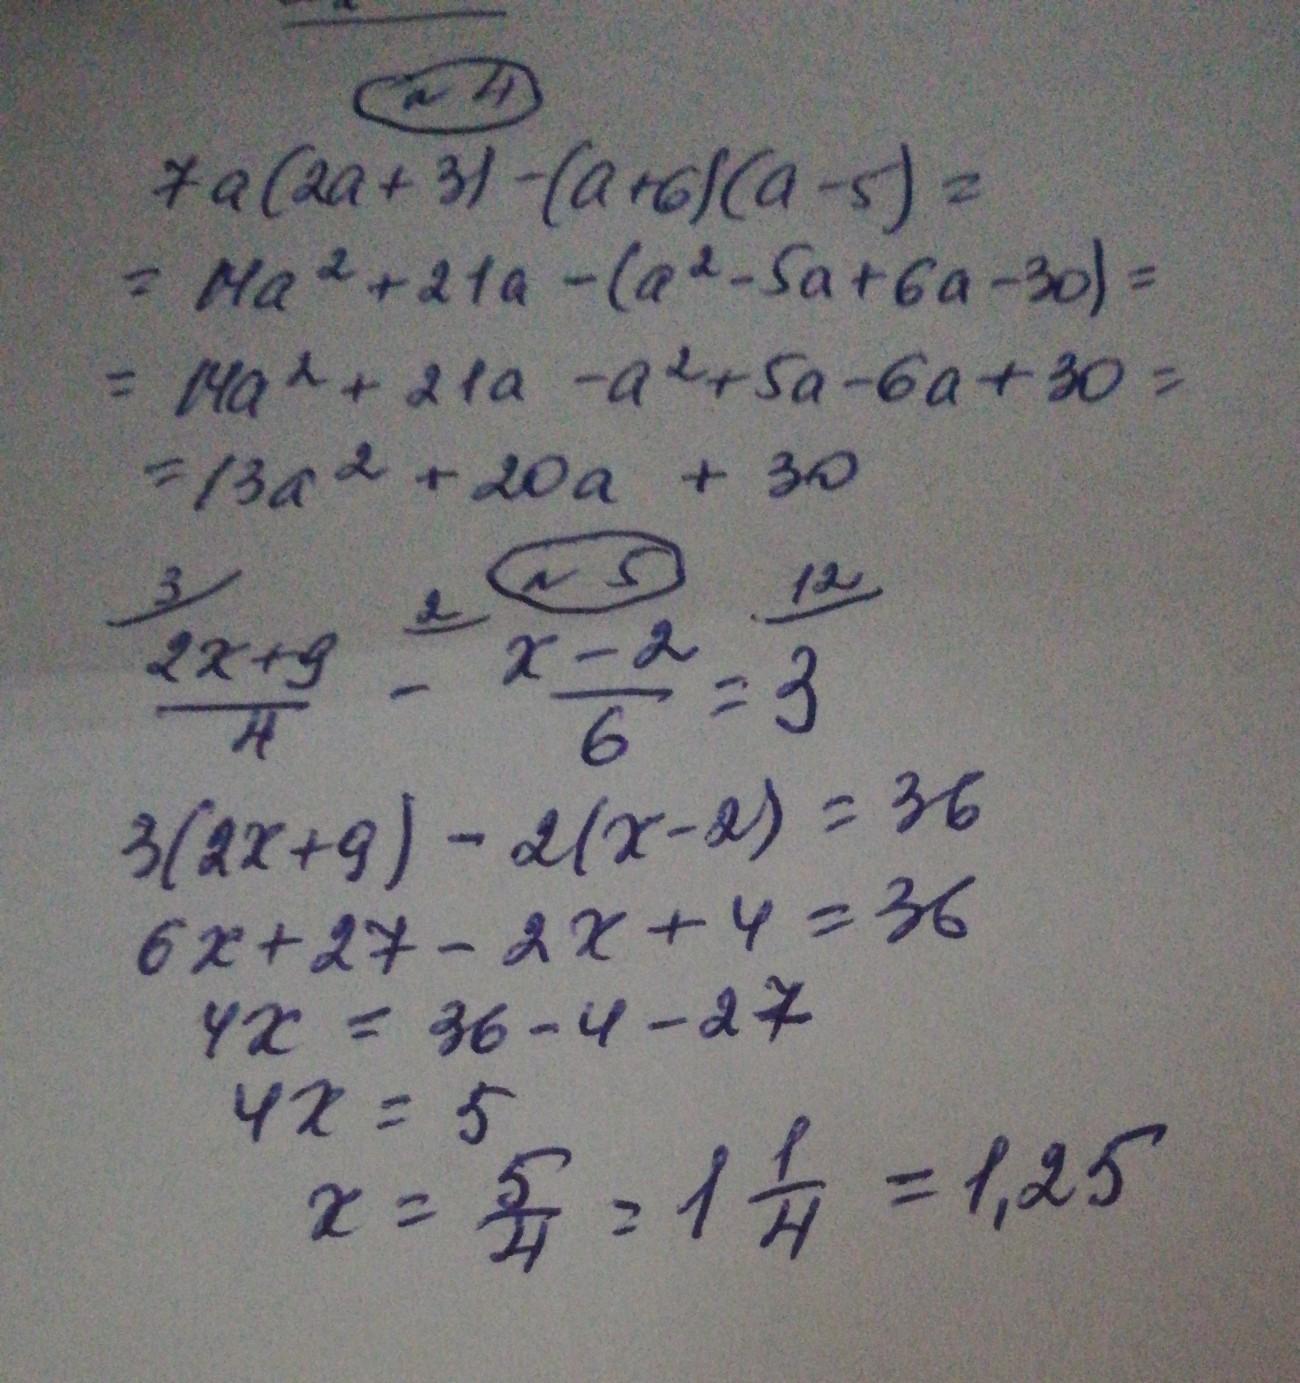 ~ 4
7a(2a+3)-(a+6)(a-5)=
= 14a²+21a-(a²-5a+6a-30)=
= 14a²+21a-a²+5a-6a+30=
=13a²+20a+30
~ 5
3/ 2/ 12/
(2x+9)/4 - (x-2)/6 = 3
3(2x+9)-2(x-2)=36
6x+27-2x+4=36
4x=36-4-27
4x=5
x=5/4=1 1/4=1,25